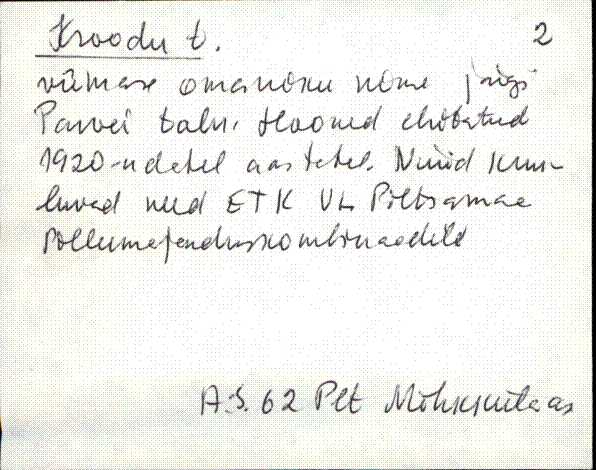 Kroodu t. 2
viimase omaniku nime järgi
Parvei talu. Hooned ehitatud
1920-ndatel aastatel. Nüüd kuu-
luvad need ETK VL Põltsamaa
Põllumajanduskombinaadile
A.S. 62 Plt